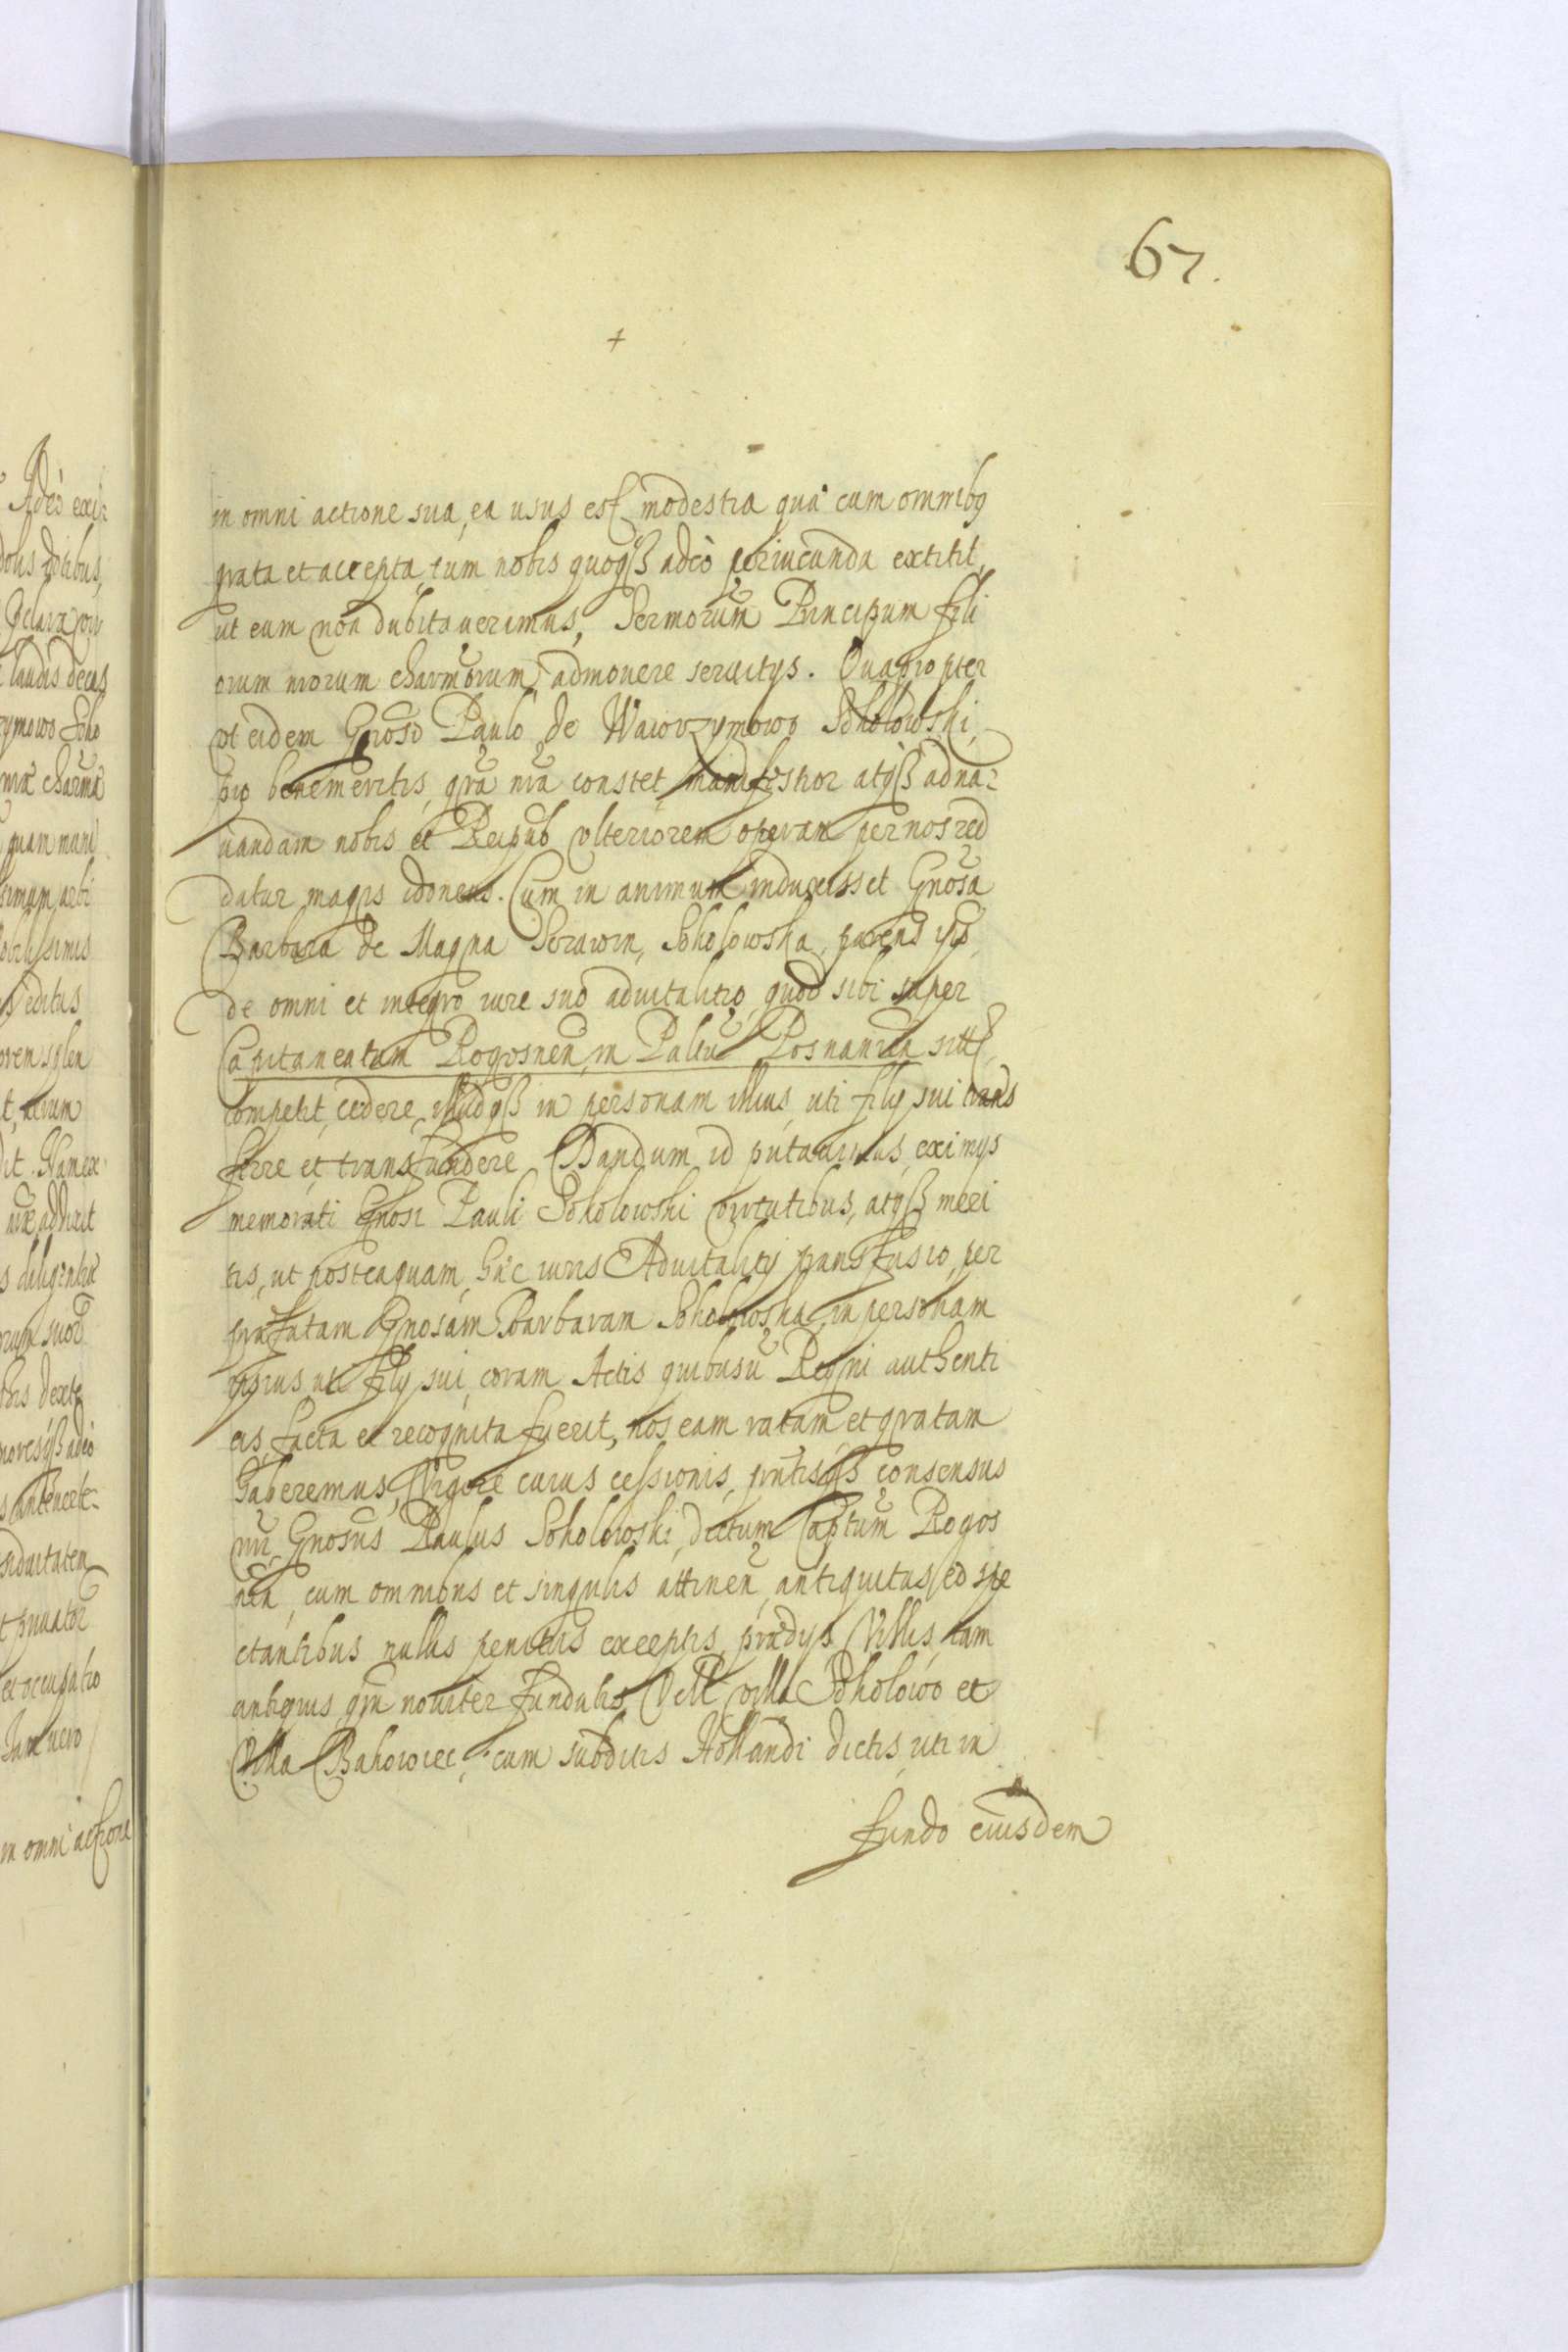 67.
+
in omni actione sua, ea usus est modestia quâ cum omnibꝫ
grata et accepta, tum nobis quoqꝫ adeò periucunda extitit,
ut eum non dubitauerimus, Sermorum̃ Principum fili
orum nrorum charmorum admouere seruitys. Quapropter
vt eidem Gnoso Paulo de Wawrzymowo Sokolowski,
pro benemeritis, gra nra constet manifestior atqꝫ ad na
uandam nobis et Reipub vlteriorem operam per nos red
datur magis idoneus. Cum in animum induxisset Gnosa
Barbara de Magna Srawin, Sokolowska, parens ipsi9
de omni et integro iure suo aduitalitio, quod sibi super
Capitaneatum Rogosnen, in Paltu Posnanien sitt,
competit, cedere, illudqꝫ in personam illius, uti fily sui trans
ferre et transfundere. Dandum id putauimus, eximys
memorati Gnosi Pauli Sokolowski virtutibus, atqꝫ meri
tis, ut posteaquam, hæc iuris Aduitality transfusio, per
præfatam Gnosam Barbaram Sokolowska, in personam
ipsius uti fily sui, coram Actis quibusu Regni authenti
cis, facta et recognita fuerit, nos eam ratam et gratam
haberemus, Vigore cuius cessionis, pntisqꝫ consensus
nri, Gnosus Paulus Sokolowski, dictum Captum Rogos
nen, cum omnibus et singulis attinen, antiquitus eo spe
ctantibus nullis penitus exceptis, prædys Villis, tam
antiquis qm nouiter fundatis, Vtt villa Sokolowo et
Villa Bakowiec, cum subditis Hollandi dictis, uti in
fundo eiusdem
in omni actione